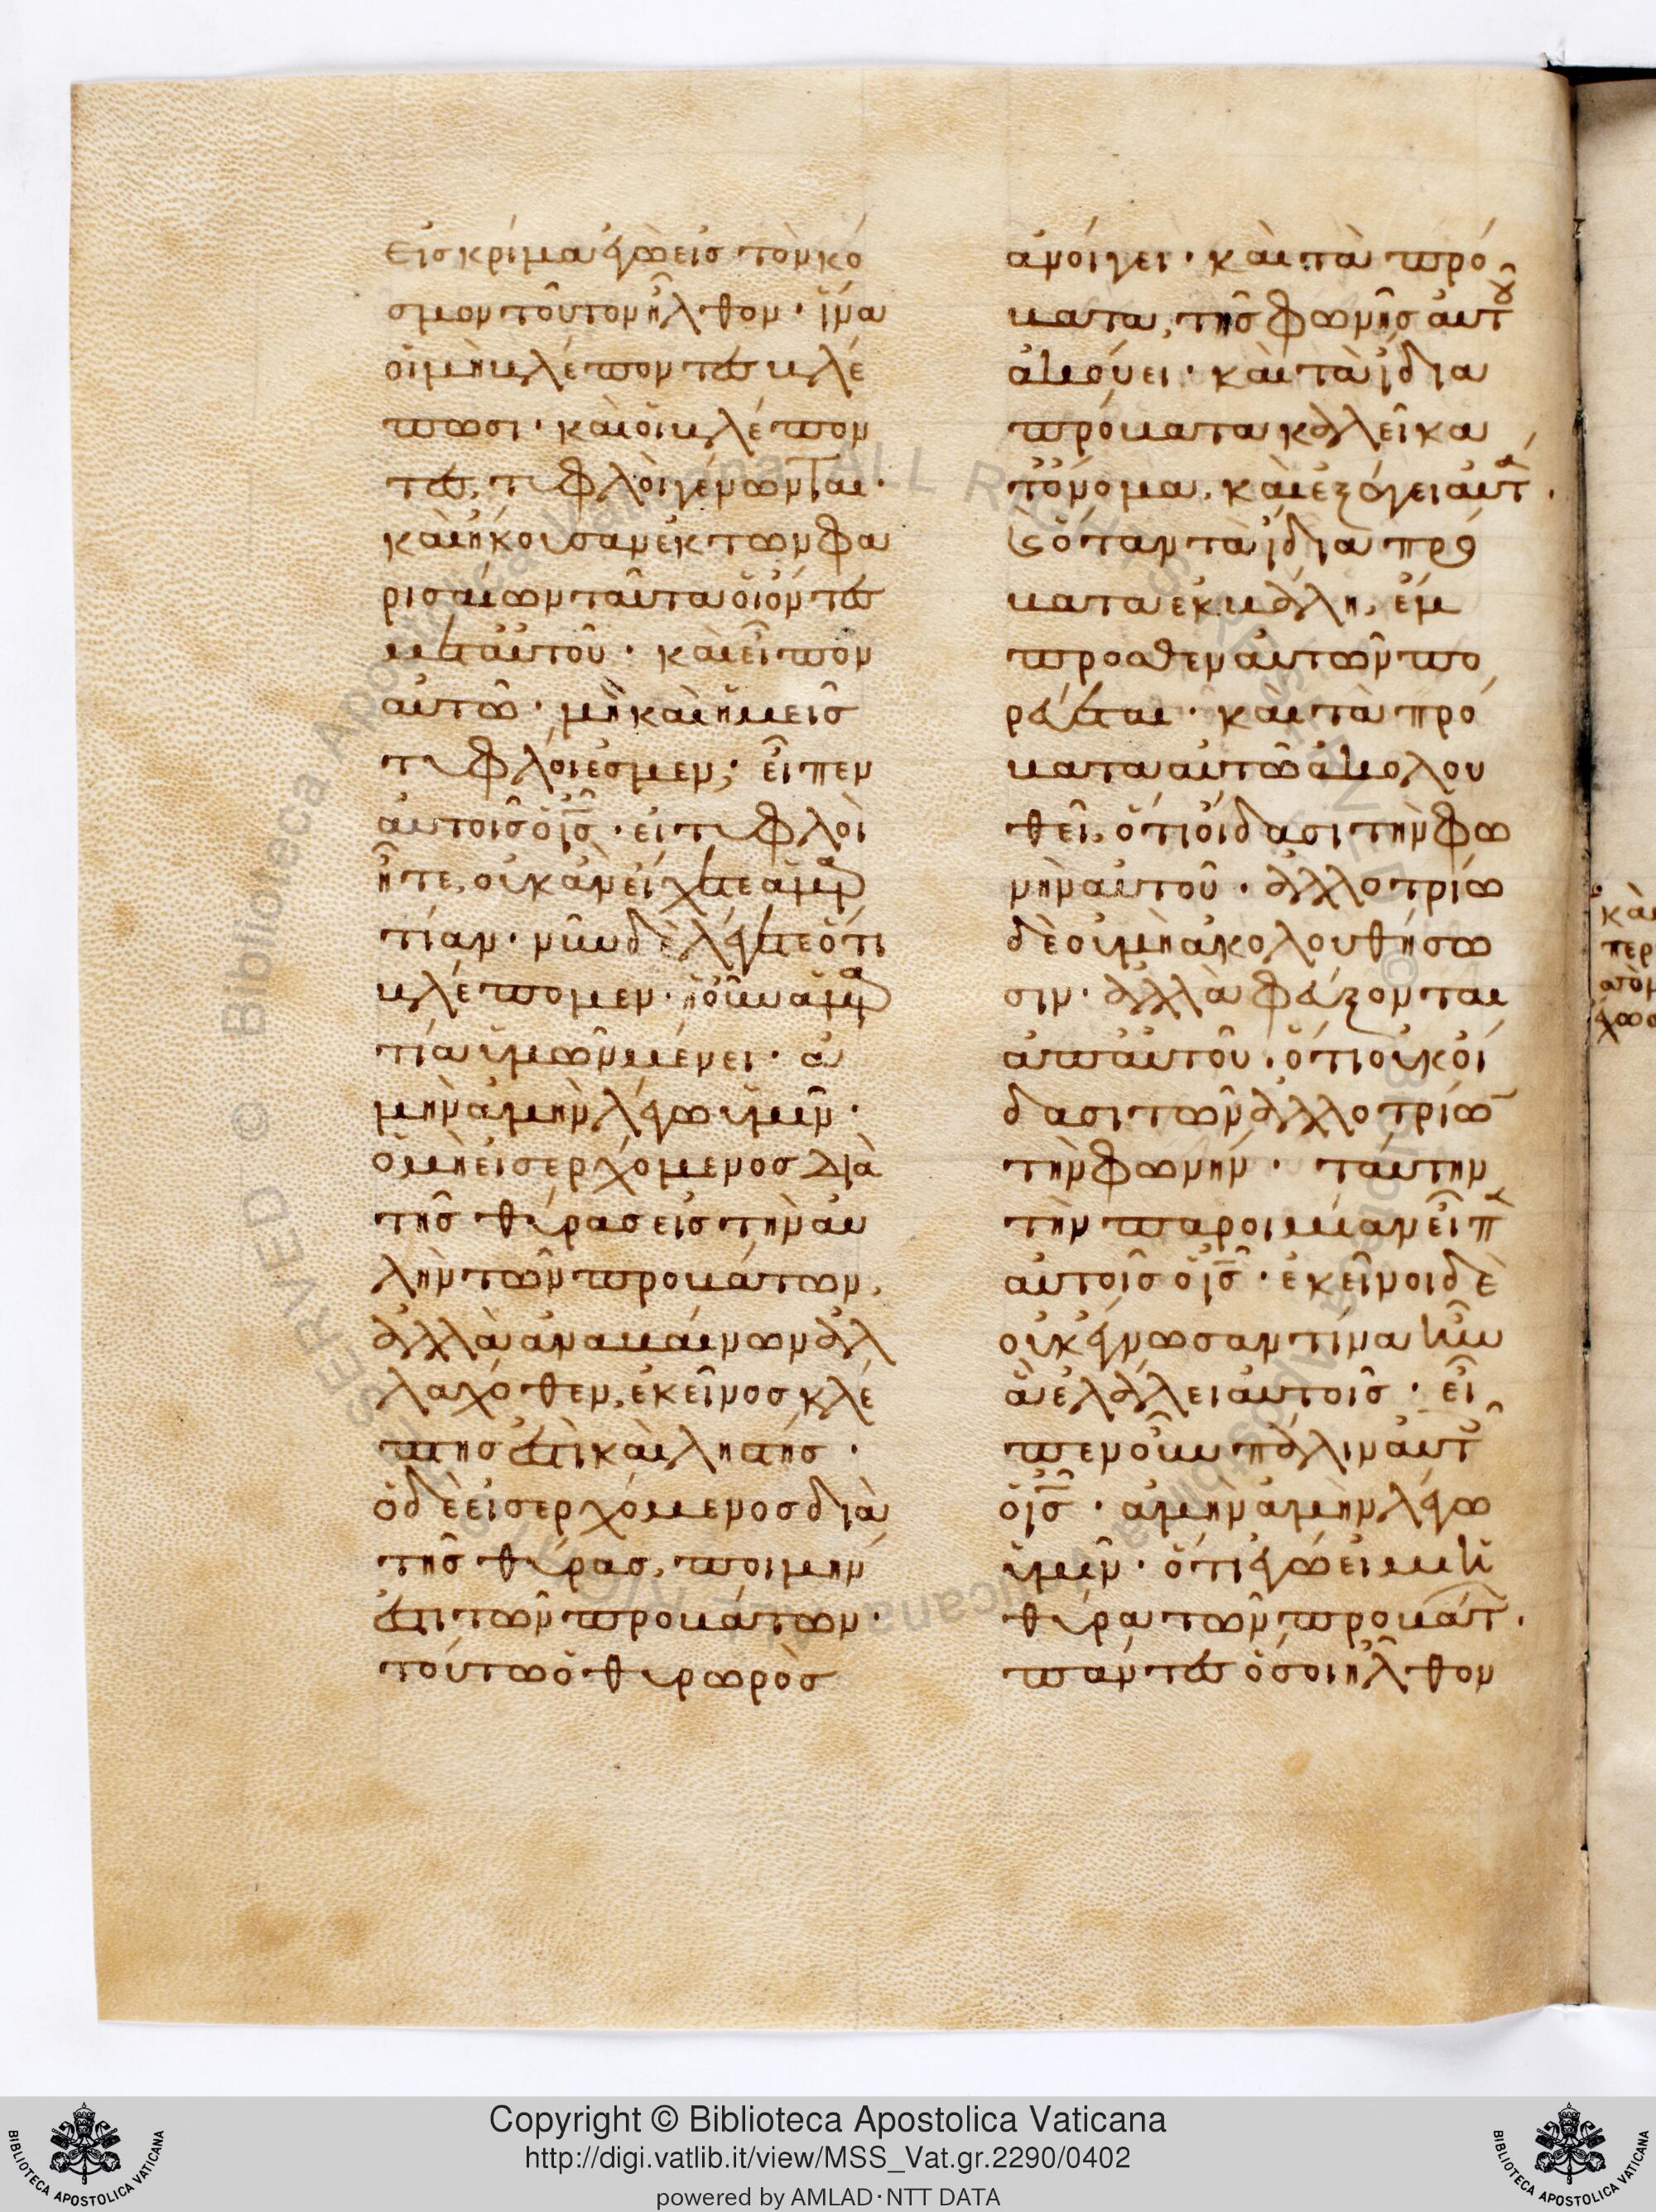 εἰς κρίμα ἐγὼ εἰς τὸν κό
σμον τοῦτον ἦλθον · ἵνα
οἱ μὴ βλέποντες βλέ
πωσι · καὶ οἱ βλέπον
τες, τυφλοὶ γένωνται ·
καὶ ἤκουσαν ἐκ τῶν φα
ρισαίων ταῦτα οἱ ὄντες
μετ αὐτοῦ · καὶ εἶπον
αὐτῶ · μὴ καὶ ἡμεῖς
τυφλοί ἐσμεν; εἶπεν
αὐτοῖς ὁ ἰς̅ · εἰ τυφλοὶ
ἦτε, οὐκ ἂν εἴχετε ἁμαρ
τίαν · νῦν δὲ λέγετε ὅτι
βλέπομεν · ἡ οὖν ἁμαρ
τία ὑμῶν μένει · ἀ
μὴν ἀμὴν λέγω ὑμῖν ·
ὁ μὴ εἰσερχόμενος διὰ
τῆς θύρας εἰς τὴν αὐ
λὴν τῶν προβάτων,
ἀλλὰ ἀναβαίνων ἀλ
λαχόθεν, ἐκεῖνος κλέ
πτης ἐστὶ καὶ ληστής ·
ὁ δὲ εἰσερχόμενος διὰ
τῆς θύρας, ποιμήν
ἐστι τῶν προβάτων ·
τούτω ὁ θυρωρὸς
ἀνοίγει · καὶ τὰ πρό
βατα, τῆς φωνῆς αὐτοῦ
ἀκούει · καὶ τὰ ἴδια
πρόβατα καλεῖ κα
τ ὄνομα, καὶ ἐξάγει αὐτά ·
καὶ ὅταν τὰ ἴδια πρό
βατα ἐκβάλη, ἔμ
προσθεν αὐτῶν πο
ρεύεται · καὶ τὰ πρό
βατα αὐτῶ ἀκολου
θεῖ, ὅτι οἴδασι τὴν φω
νὴν αὐτοῦ · ἀλλοτρίω
δὲ οὐ μὴ ἀκολουθήσω
σιν · ἀλλὰ φεύξονται
ἀπ αὐτοῦ · ὅτι οὐκ οἴ
δασι τῶν ἀλλοτρίω̅
τὴν φωνήν · ταύτην
τὴν παροιμίαν εἶπεν
αὐτοῖς ὁ ἰς̅ · ἐκεῖνοι δὲ
οὐκ ἔγνωσαν τίνα ἦν
ἃ ἐλάλει αὐτοῖς · εἶ
πεν οὖν πάλιν αὐτοῖς
ὁ ἰς̅ · ἀμὴν ἀμὴν λέγω
ὑμῖν · ὅτι ἐγώ εἰμι ἡ
θύρα τῶν προβάτων ·
πάντες ὅσοι ἦλθον
καὶ
περ